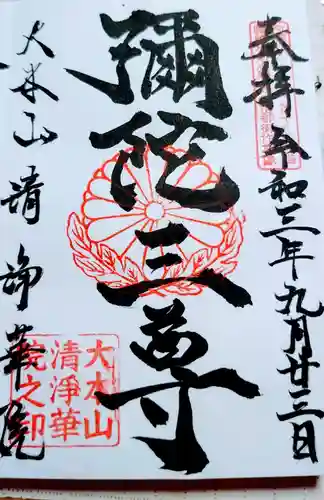 奉拝
令和三年九月廿三日
彌陀三尊
大本山清浄華院
大本山
清淨華
院之印